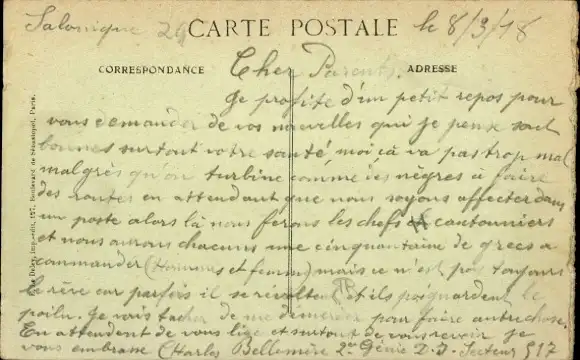 Salonique 29 CARTE POSTALE le 8/3/18
CORRESPONDANCE Cher Parents. ADRESSE
Je profite d'un petit repos pour
vous demander de vos nouvelles qui je pense sont
bonnes surtout votre santé, moi çà va pas trop mal
malgrès qu'on turbine comme des nègres à faire
des routes en attendant que nous soyons affecter dans
un poste alors là nous ferons les chefs cantonniers
et nous aurons chacuns une cinquantaine de grecs a
commander (Hommes et femm) mais ce n'est pas toujours
le rêve car parfois il se révoltent et ils poignardent le
poilu. Je vais tacher de me démerder pour faire autre chose.
En attendent de vous lire et surtout de vous revoir je
vous embrasse Charles Bellemère 2e Génie D.J. Secteur 517
Imp.-édit., 157, Boulevard de Sébastopol, Paris.